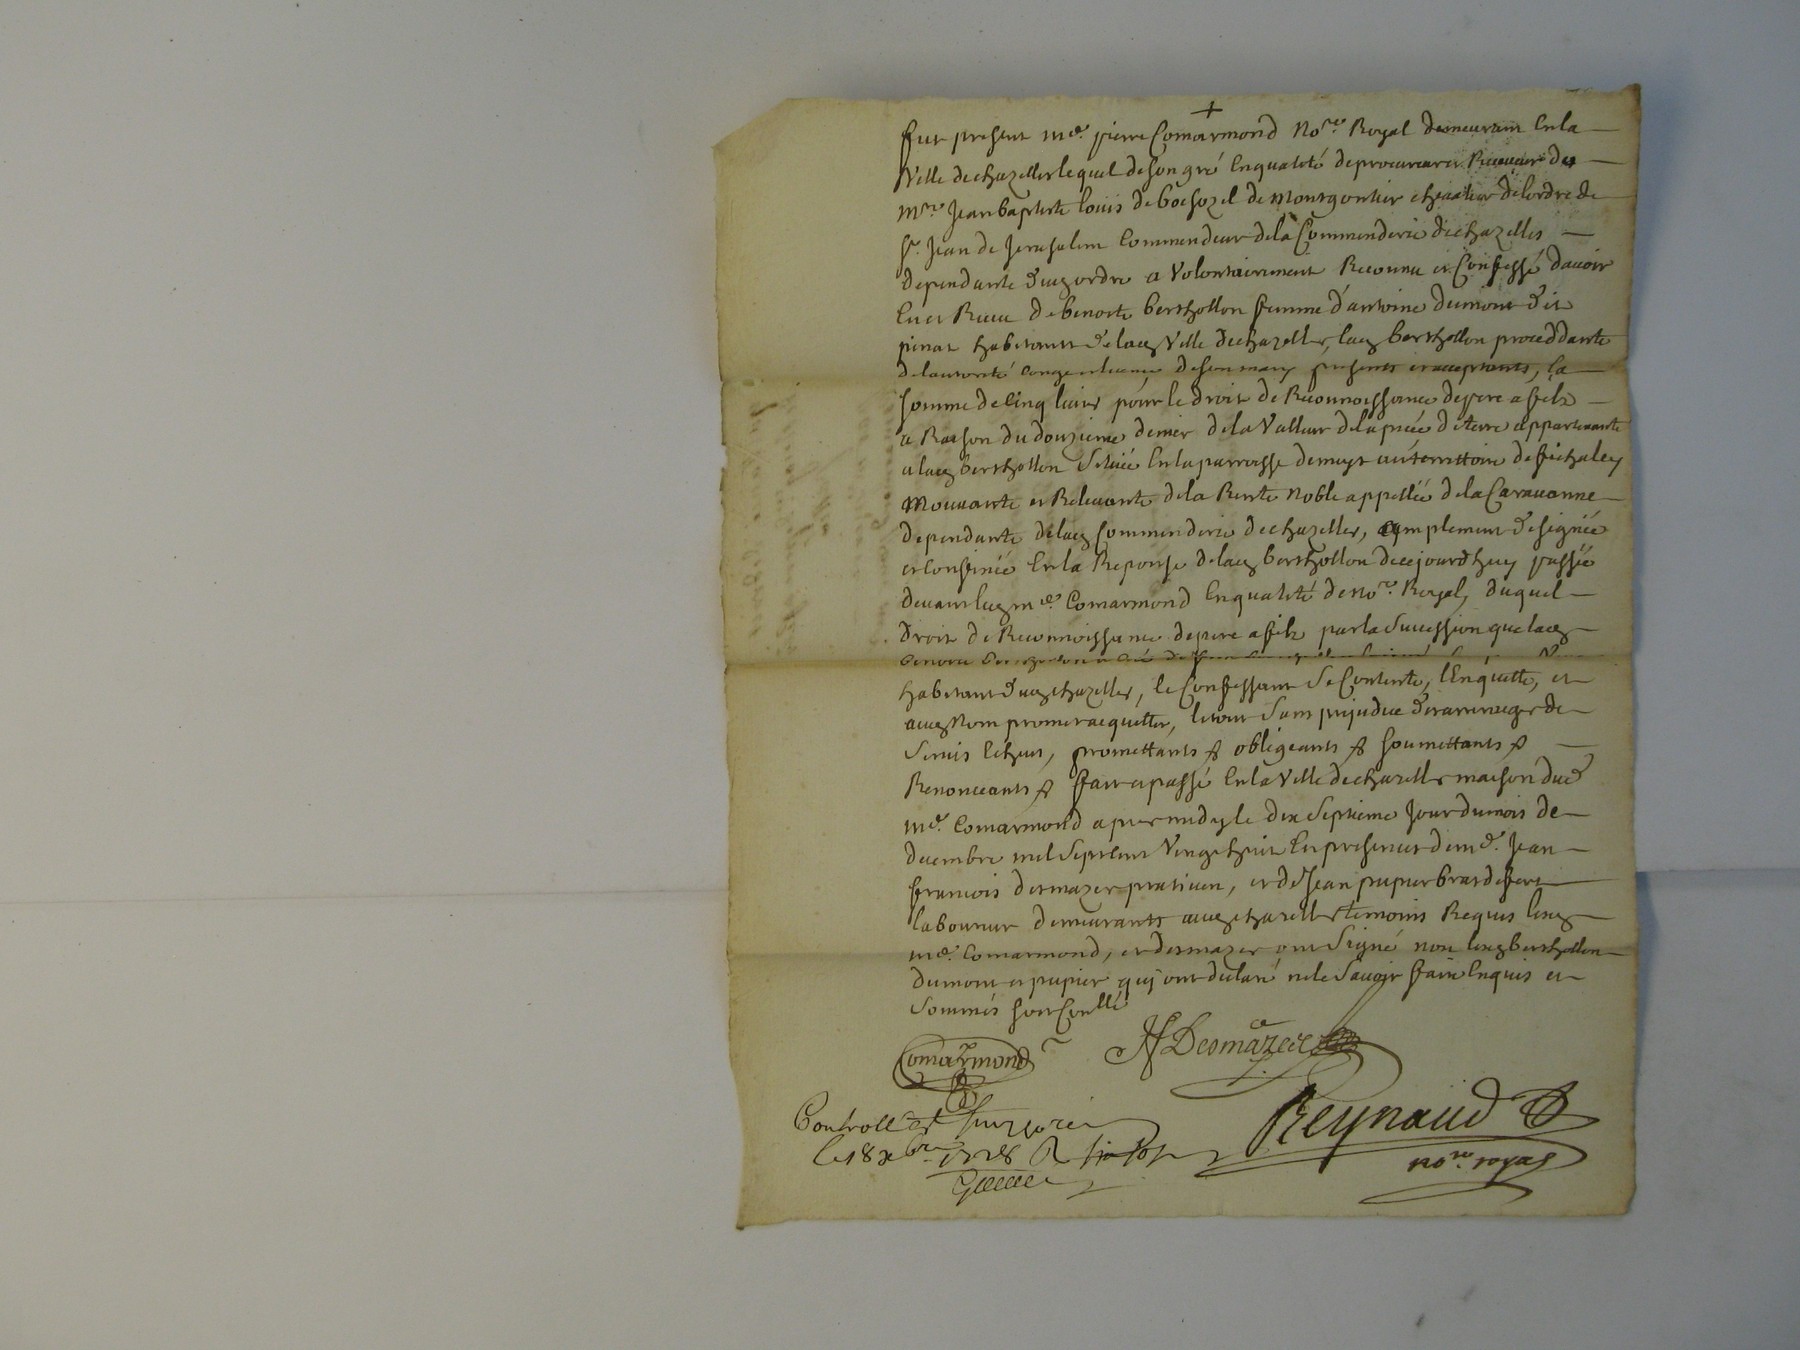 +
fut present me. pierre Comarmond Nore Royal demeurant En la
Ville de chazelles lequel de son gré En qualité de procureur et Receueur de
mre Jean baptiste Louis de bocsozel de montgontier cheualier de lordre de
St. Jean de Jerusalem Commendeur de la Commenderie de chazelles
dependante dud ordre a Volontairement Reconnu et Confessé dauoir
Eu et Receu de benoite berthollon femme d'antoine dumont dit
pinat habitants de lad Ville de chazelles, lad berthollon proceddante
de lautorité conge et licence de son mary presents et acceptants, la
somme de Cinq liures pour le droit de Reconnoissance de pere a fils
a Raison du douzieme denier de la Valleur de la piéce de terre appartenante
a lad berthollon Scituée En la parroisse de meys au territtoire de
Mouuante et Releuante de la Rente Noble appellée de la Carauanne
dependante de lad Commenderie de chazelles, amplement designée
et Confinée En la Reponse de lad berthollon de cejourdhuy passée
deuant led me. Comarmond En qualité de Nore. Royal, duquel
droit de Reconnoissance de pere a fils par la Succession que lad
benoite berthollon a
habitant dud chazelles, le Confessant Se Contente, l'En quitte, et
aud Nom promet acquitter, le tout Sans prejudice darrerages de
Seruis Echeus, promettants & obligeants & soumettants &
Renonceants & fait et passé En la Ville de chazelles maison dud
me. Comarmond apres midy le dix Septieme Jour du mois de
decembre mil Sept Cent Vingt huit En presence de me. Jean
francois desmazes praticien, et de Jean pupier bras de fert
laboureur demeurants aud chazelles temoins Requis lesd
me. Comarmond, et desmazes ont Signé non lesd berthollon
dumont et pupier qui ont declaré ne le Sauoir faire Enquis et
Sommés soit Conllé
Comarmond
JfDesmazes
Controllé
le 18 xbre 1728 R
Reynaud
nore. royal